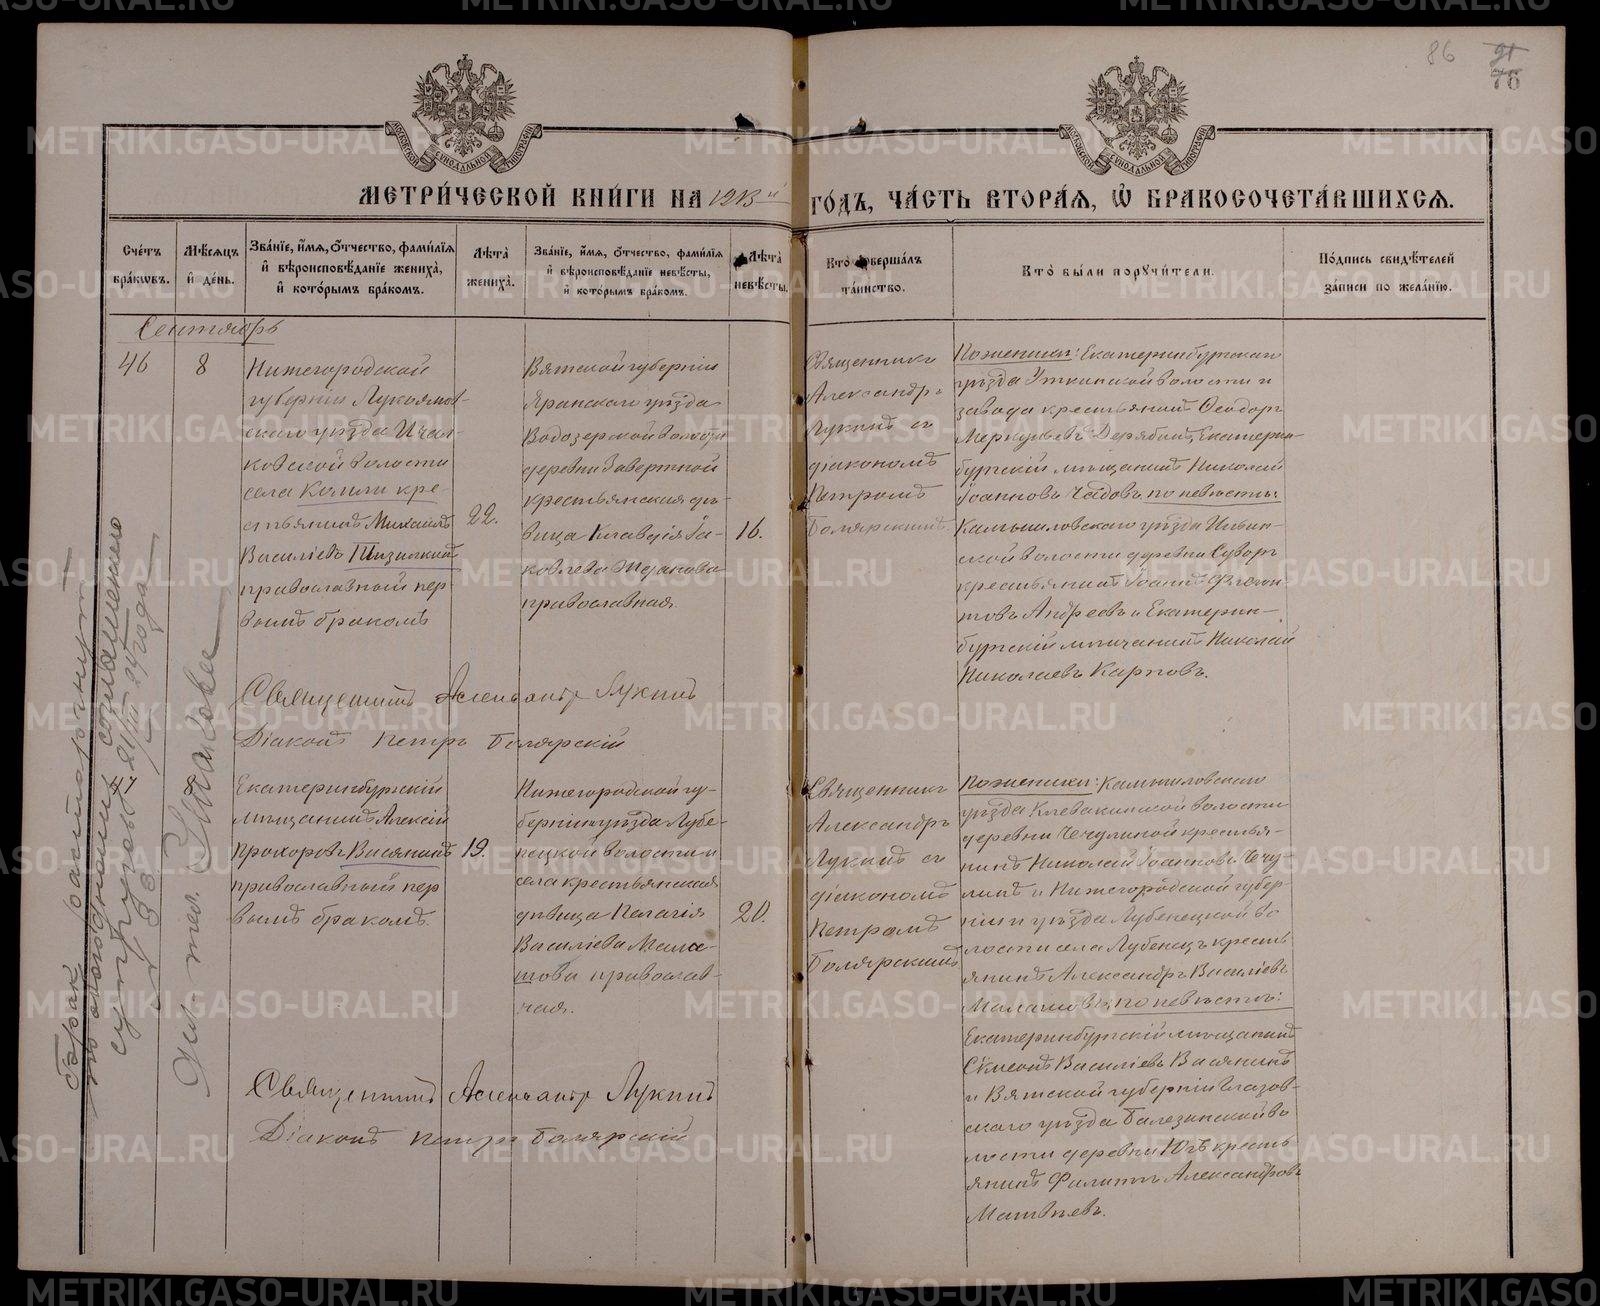 86
91
76
МОСКОВСКОЙ СѴНОДАЛЬНОЙ ТИПОГРАФІИ
МОСКОВСКОЙ СѴНОДАЛЬНОЙ ТИПОГРАФІИ
МЕТРИ́ЧЕСКОЙ КНИ́ГИ НА 1913й ГО́ДЪ, ЧА́СТЬ ВТОРА́Я, Ѽ БРАКОСОЧЕТА́ВШИХСЯ.
Сче́тъ бра́ковъ.
Мѣ́сяцъ и҆ де́нь.
Зва́нїе, и҆́мя, ѻ҆́тчество, фами́лїя и҆ вѣроисповѣ́данїе жениха̀, и҆ кото́рымъ бра́комъ.
Лѣта̀ жениха̀.
Зва́нїе, и҆́мя, ѻ҆́тчество, фами́лїя и҆ вѣроисповѣ́данїе невѣ́сты, и҆ кото́рымъ бра́комъ.
Лѣта̀ невѣ́сты.
Кто̀ соверша́лъ та́инство.
Кто̀ бы́ли порꙋчи́тели.
По́дпись свидѣ́телей за́писи по жела́нїю.
Сентябрь
46
8
Нижегородской
губерніи Лукоянов-
скаго уѣзда Ичал-
ковской волости
села Кемли кре-
стьянинъ Михаилъ
Василіевъ
православный пер-
вымъ бракомъ
22.
Вятской губерніи
Яранскаго уѣзда
Водозерской волости
деревни Завертной
крестьянская дѣ-
вица Клавдія Іа-
ковлева Жданова
православная.
16.
Священникъ
Александръ
Лукинъ съ
діакономъ
Петромъ
Болярскимъ.
По женихѣ: Екатеринбургскаго
уѣзда Уткинской волости и
завода крестьянинъ Ѳеодоръ
Меркурьевъ Дерябинъ, Екатерин-
бургскій мѣщанинъ Николай
Іоанновъ Чадовъ; по невѣстѣ:
Камышловскаго уѣзда
ской волости деревни
крестьянинъ Іоаннъ
товъ Андреевъ и Екатерин-
бургскій мѣщанинъ Николай
Николаевъ Карповъ.
Священникъ Александръ Лукинъ
Діаконъ Петръ Болярскій
47
8
Екатеринбургскій
мѣщанинъ Алексій
Прохоровъ Васянинъ
православный пер
вымъ бракомъ.
19.
Нижегородской гу-
берніи и уѣзда Лубе-
нецкой волости и
села крестьянская
дѣвица Пелагія
Василіева Мала-
шова православ-
ная.
20.
Священникъ
Александръ
Лукинъ съ
діакономъ
Петромъ
Болярскимъ
По женихѣ: Камышловскаго
уѣзда Клевакинской волости
деревни Чечулиной крестья-
нинъ Николай Іоанновъ Чечу-
линъ и Нижегородской губер-
ніи и уѣзда Лубенецкой во
лости села Лубенецъ кресть
янинъ Александръ Василіевъ
Малашовъ; по невѣстѣ:
Екатеринбургскій мѣщанинъ
Симеонъ Василіевъ Васянинъ
и Вятской губерніи Глазов-
скаго уѣзда Балезинской во
лости деревни Югъ кресть
янинъ Филиппъ Александровъ
Матвѣевъ.
Священникъ Александръ Лукинъ
Діаконъ Петръ Болярскій
Брак расторгнут
по соглашению
супругов 21/III 24 года